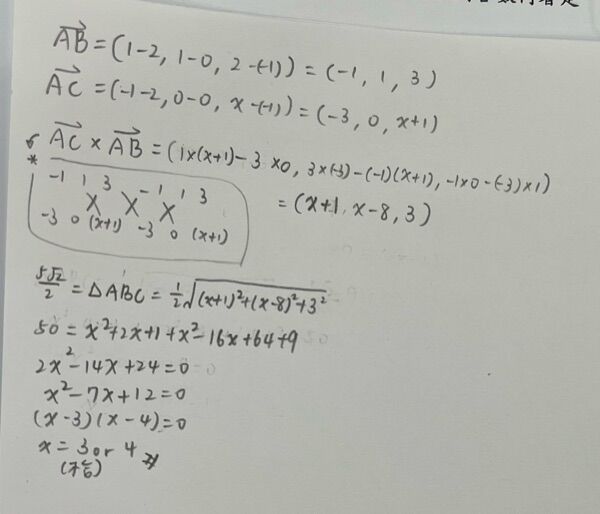 AB⃗ = (1-2, 1-0, 2-(-1)) = (-1, 1, 3)
AC⃗ = (-1-2, 0-0, x-(-1)) = (-3, 0, x+1)
AC⃗ × AB⃗ = (1×(x+1) - 3×0, 3×(-3) - (-1)(x+1), -1×0 - (-3)×1)
* -1 1 3 -1 1 3
-3 0 (x+1) -3 0 (x+1)
= (x+1, x-8, 3)
5√2/2 = △ABC = 1/2 √((x+1)²+(x-8)²+3²)
50 = x²+2x+1+x²-16x+64+9
2x²-14x+24=0
x²-7x+12=0
(x-3)(x-4)=0
x = 3 or 4
(不合)